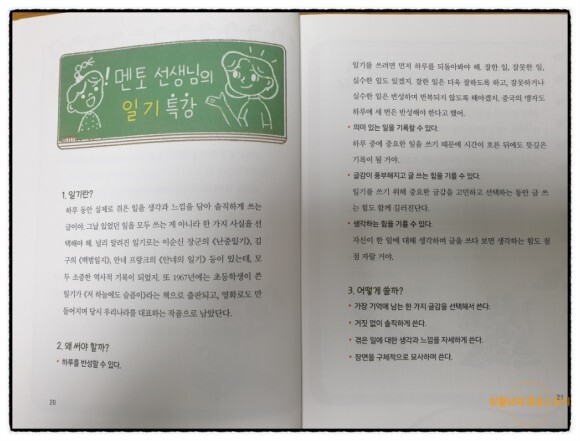 멘토 선생님의
일기 특강
1. 일기란?
하루 동안 실제로 겪은 일을 생각과 느낌을 담아 솔직하게 쓰는
글이야. 그날 있었던 일을 모두 쓰는 게 아니라 한 가지 사실을 선
택해야 해. 널리 알려진 일기로는 이순신 장군의 《난중일기》, 김
구의 《백범일지》, 안네 프랑크의 《안네의 일기》 등이 있는데, 모
두 소중한 역사적 기록이 되었지. 또 1967년에는 초등학생이 쓴
일기가 《저 하늘에도 슬픔이》라는 책으로 출판되고, 영화로도 만
들어지며 당시 우리나라를 대표하는 작품으로 남았단다.
2. 왜 써야 할까?
• 하루를 반성할 수 있다.
20
일기를 쓰려면 먼저 하루를 되돌아봐야 해. 잘한 일, 잘못한 일,
실수한 일도 있겠지. 잘한 일은 더욱 잘하도록 하고, 잘못하거나
실수한 일은 반성하며 반복되지 않도록 해야겠지. 중국의 맹자도
하루에 세 번은 반성해야 한다고 했어.
• 의미 있는 일을 기록할 수 있다.
하루 중에 중요한 일을 쓰기 때문에 시간이 흐른 뒤에도 뜻깊은
기록이 될 거야.
• 글감이 풍부해지고 글 쓰는 힘을 기를 수 있다.
일기를 쓰기 위해 중요한 글감을 고민하고 선택하는 동안 글 쓰
는 힘도 함께 길러진단다.
• 생각하는 힘을 기를 수 있다.
자신이 한 일에 대해 생각하며 글을 쓰다 보면 생각하는 힘도 점
점 자랄 거야.
3. 어떻게 쓸까?
• 가장 기억에 남는 한 가지 글감을 선택해서 쓴다.
• 거짓 없이 솔직하게 쓴다.
• 겪은 일에 대한 생각과 느낌을 자세하게 쓴다.
• 장면을 구체적으로 묘사하며 쓴다.
21